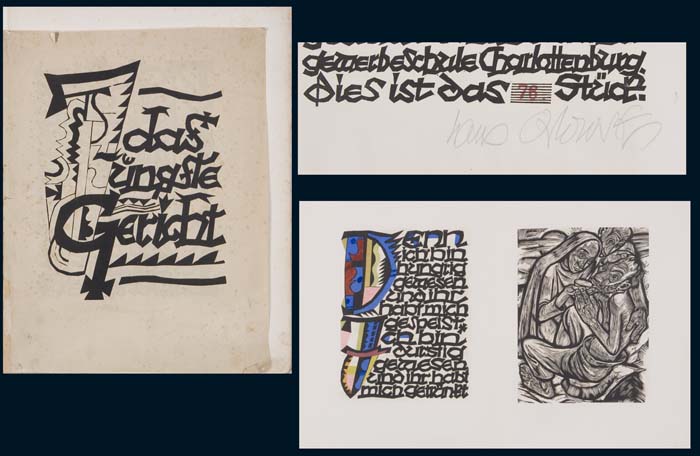 das
jüngste
Gericht
gewerbeschule Charlottenburg.
Dies ist das 78 Stück.
Denn
ich bin
hungrig
gewesen
und ihr
habt mich
gespeist.
Ich bin
durstig
gewesen
und ihr habt
mich getränkt